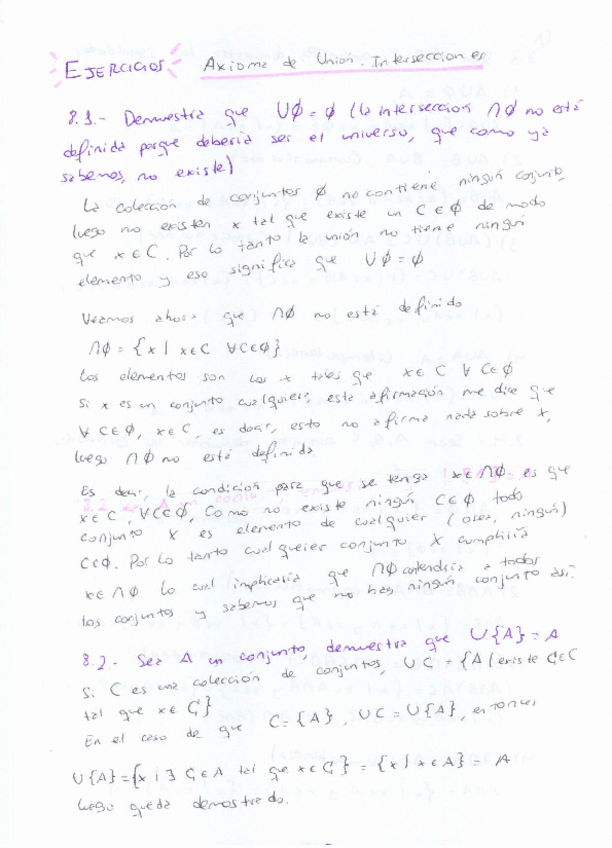 EJERCICIOS Axioma de Unión. Intersecciones
8.1.- Demuestra que U∅ = ∅ (la intersección ∩∅ no está
definida porque debería ser el universo, que como ya
sabemos, no existe)
La colección de conjuntos ∅ no contiene ningún conjunto,
luego no existen x tal que existe un C∈∅ de modo
que x∈C. Por lo tanto la unión no tiene ningún
elemento y eso significa que U∅ = ∅
Veamos ahora que ∩∅ no está definido
∩∅ = {x | x∈C ∀C∈∅}
Los elementos son los x tales que x∈C ∀C∈∅
Si x es un conjunto cualquiera, esta afirmación me dice que
∀C∈∅, x∈C, es decir, esto no afirma nada sobre x,
luego ∩∅ no está definida.
Es decir, la condición para que se tenga x∈∩∅ es que
x∈C, ∀C∈∅, Como no existe ningún C∈∅ todo
conjunto X es elemento de cualquier (osea, ningún)
C∈∅. Por lo tanto cualquier conjunto X cumpliría
x∈∩∅ lo cual implicaría que ∩∅ contendría a todos
los conjuntos y sabemos que no hay ningún conjunto así.
8.2.- Sea A un conjunto, demuestra que U{A} = A
Si C es una colección de conjuntos, UC = {A / existe G∈C
tal que x∈G}
En el caso de que C={A}, UC = U{A}, entonces
U{A}={x | ∃ G∈A tal que x∈G} = {x / x∈A} = A
luego queda demostrado.